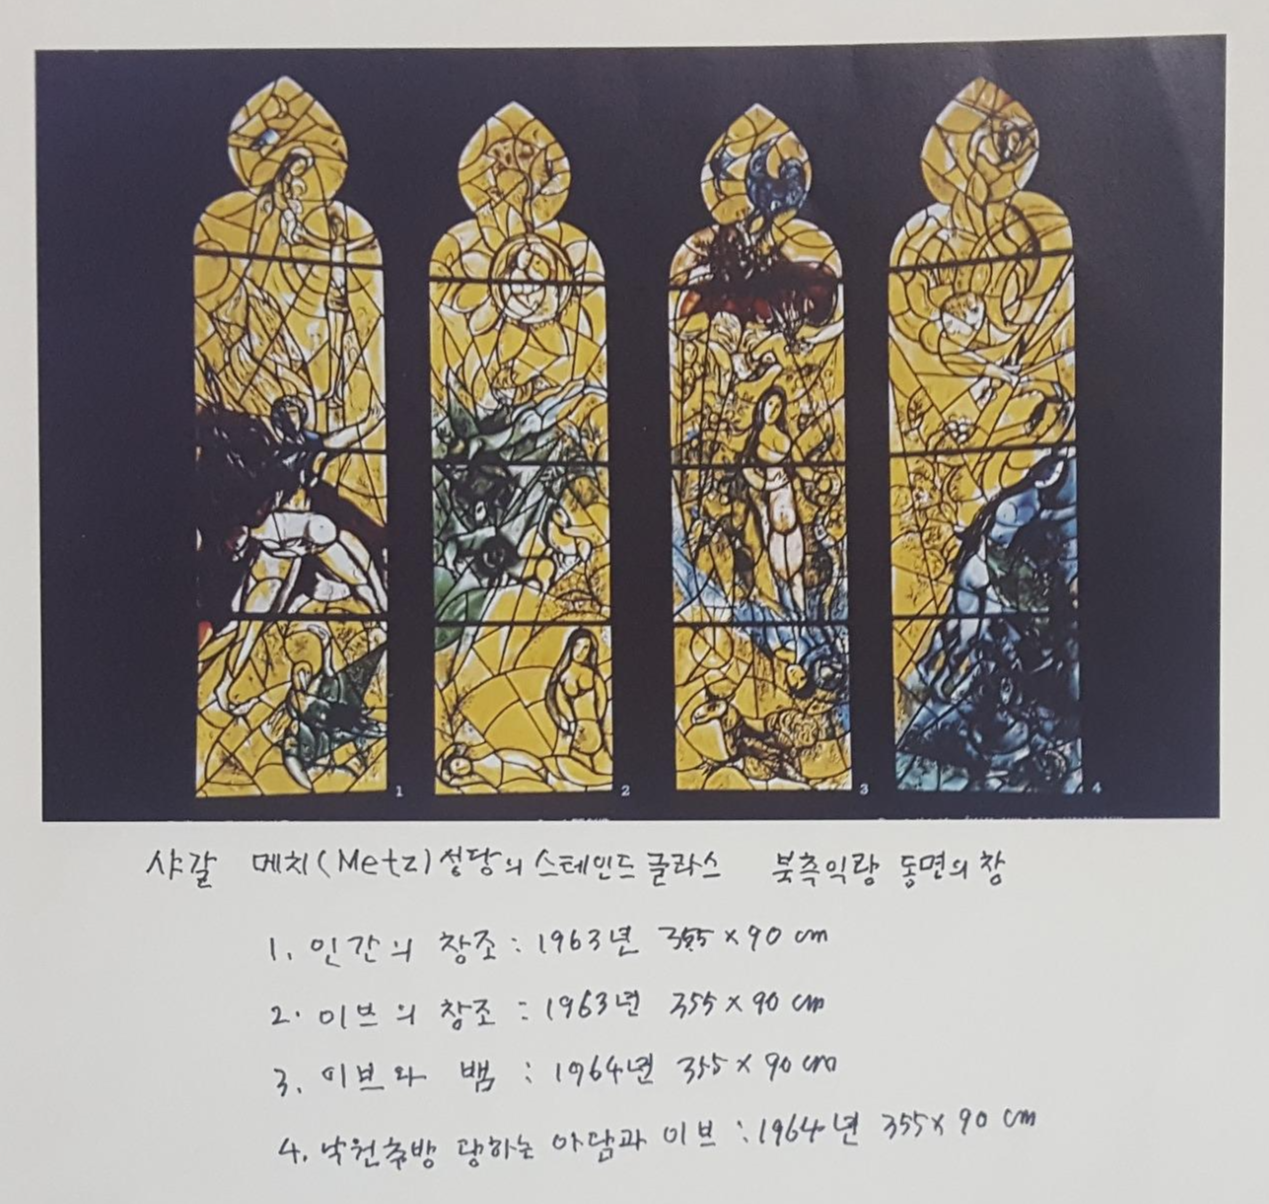 1 2 3 4
샤갈 메치(Metz) 성당의 스테인드 글라스 북측익랑 동면의 창
1. 인간의 창조 : 1963년 355 x 90 cm
2. 이브의 창조 : 1963년 355 x 90 cm
3. 이브와 뱀 : 1964년 355 x 90 cm
4. 낙원추방 당하는 아담과 이브 : 1964년 355 x 90 cm